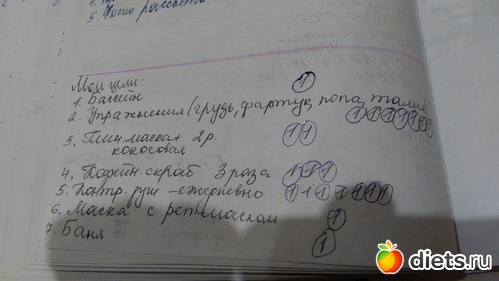 5. Фото рассыт
Мои цели:
1. Бассейн 1
2. Упражнения (грудь, фартук, попа, талия
1 1 1 1 1 1 1
3. Тин. масса 2 р. 1 1
кокосовая
4. Кофейн. скраб 3 раза 1 1 1
5. Контр. душ - ежедневно 1 1 1 1 1 1 1
6. Маска с реп. маслом 1
7. Баня 1
diets.ru